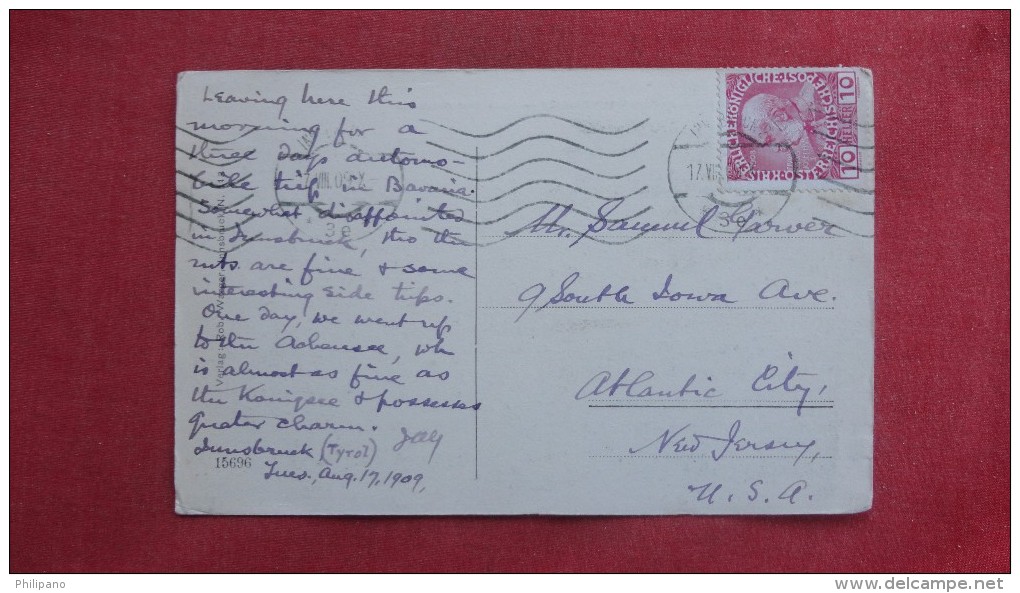 Leaving here this
morning for a
three days automo-
bile trip in Bavaria.
Somewhat disappointed
in Innsbruck, tho the
mts are fine & some
interesting side trips.
One day, we went up
to the Achensee, wh
is almost as fine as
the Konigsee & possesses
greater charm.
Innsbruck (Tyrol)
Tues., Aug. 17, 1909,
15696
Mr. Samuel Garver
9 South Iowa Ave.
Atlantic City,
New Jersey,
U.S.A.
KAISERLICHE KÖNIGLICHE
ÖSTERREICHISCHE POST
10 HELLER 10
17.VIII
3e
VIII.09
3e
Philipano
delcampe.net